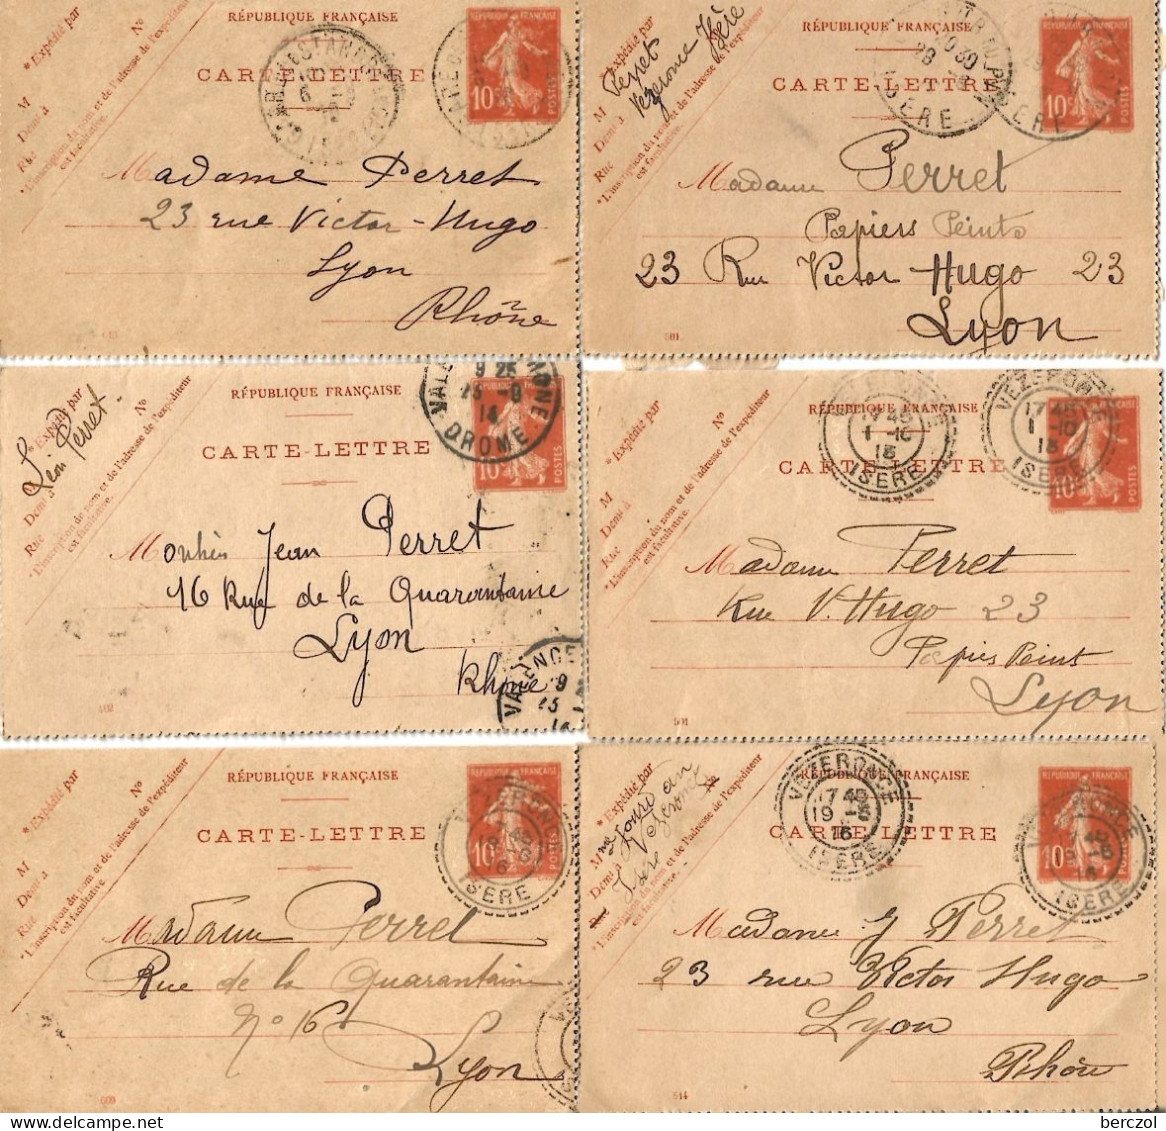 RÉPUBLIQUE FRANÇAISE
CARTE-LETTRE
* Expédié par
N°
M
Demt à
Rue
* L'inscription du nom et de l'adresse de l'expéditeur
est facultative.
10c POSTES
Madame Perret
23 rue Victor-Hugo
Lyon
Rhône
RÉPUBLIQUE FRANÇAISE
CARTE-LETTRE
* Expédié par
M
Demt à
Rue
* L'inscription du nom et de l'adresse de l'expéditeur
est facultative.
Perret
Vezeronce Isère
ISERE
10c POSTES
Madame Perret
Papiers Peints
23 Rue Victor Hugo 23
Lyon
601
RÉPUBLIQUE FRANÇAISE
CARTE-LETTRE
* Expédié par
N°
Demt à
Rue
* L'inscription du nom et de l'adresse de l'expéditeur
est facultative.
Léon Perret
9 25
14
DROME
10c POSTES
Jean Perret
16 Rue de la Quarantaine
Lyon
Rhône
RÉPUBLIQUE FRANÇAISE
CARTE-LETTRE
* Expédié par
N°
M
Demt à
Rue
* L'inscription du nom et de l'adresse de l'expéditeur
est facultative.
VEZERONCE
17 45
1 -10
ISERE
10c POSTES
Madame Perret
Rue V. Hugo 23
Papiers Peint
Lyon
RÉPUBLIQUE FRANÇAISE
CARTE-LETTRE
* Expédié par
N°
M
Demt à
Rue
* L'inscription du nom et de l'adresse de l'expéditeur
est facultative.
ISERE
10c POSTES
Madame Perret
Rue de la Quarantaine
N° 16
Lyon
609
RÉPUBLIQUE FRANÇAISE
CARTE-LETTRE
* Expédié par
M
Demt à
* L'inscription du nom et de l'adresse de l'expéditeur
est facultative.
Vezeronce
Isère
VEZERONCE
17 45
16
ISERE
10c POSTES
Madame J Perret
23 rue Victor Hugo
Lyon
Rhône
514
berczol